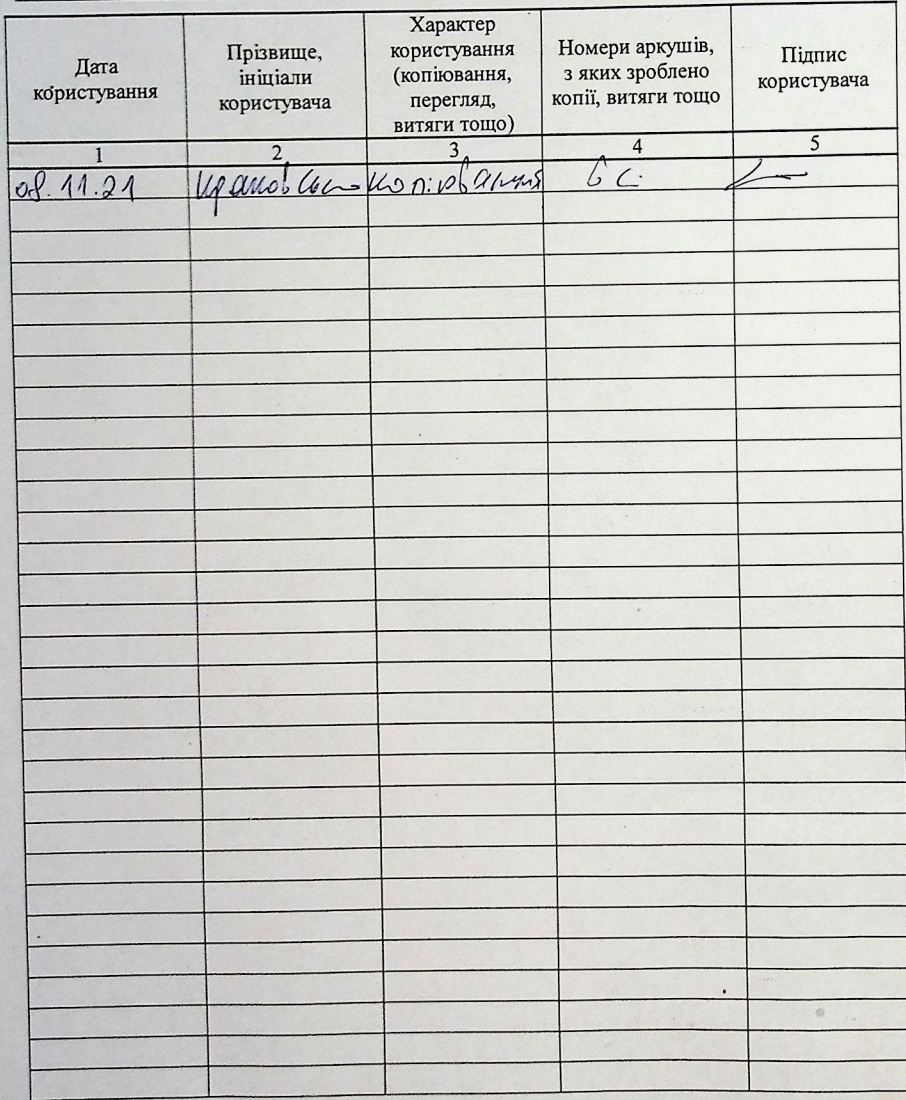 Дата
користування
Прізвище,
ініціали
користувача
Характер
користування
(копіювання,
перегляд,
витяги тощо)
Номери аркушів,
з яких зроблено
копії, витяги тощо
Підпис
користувача
1 2 3 4 5
08.11.21 копіювання